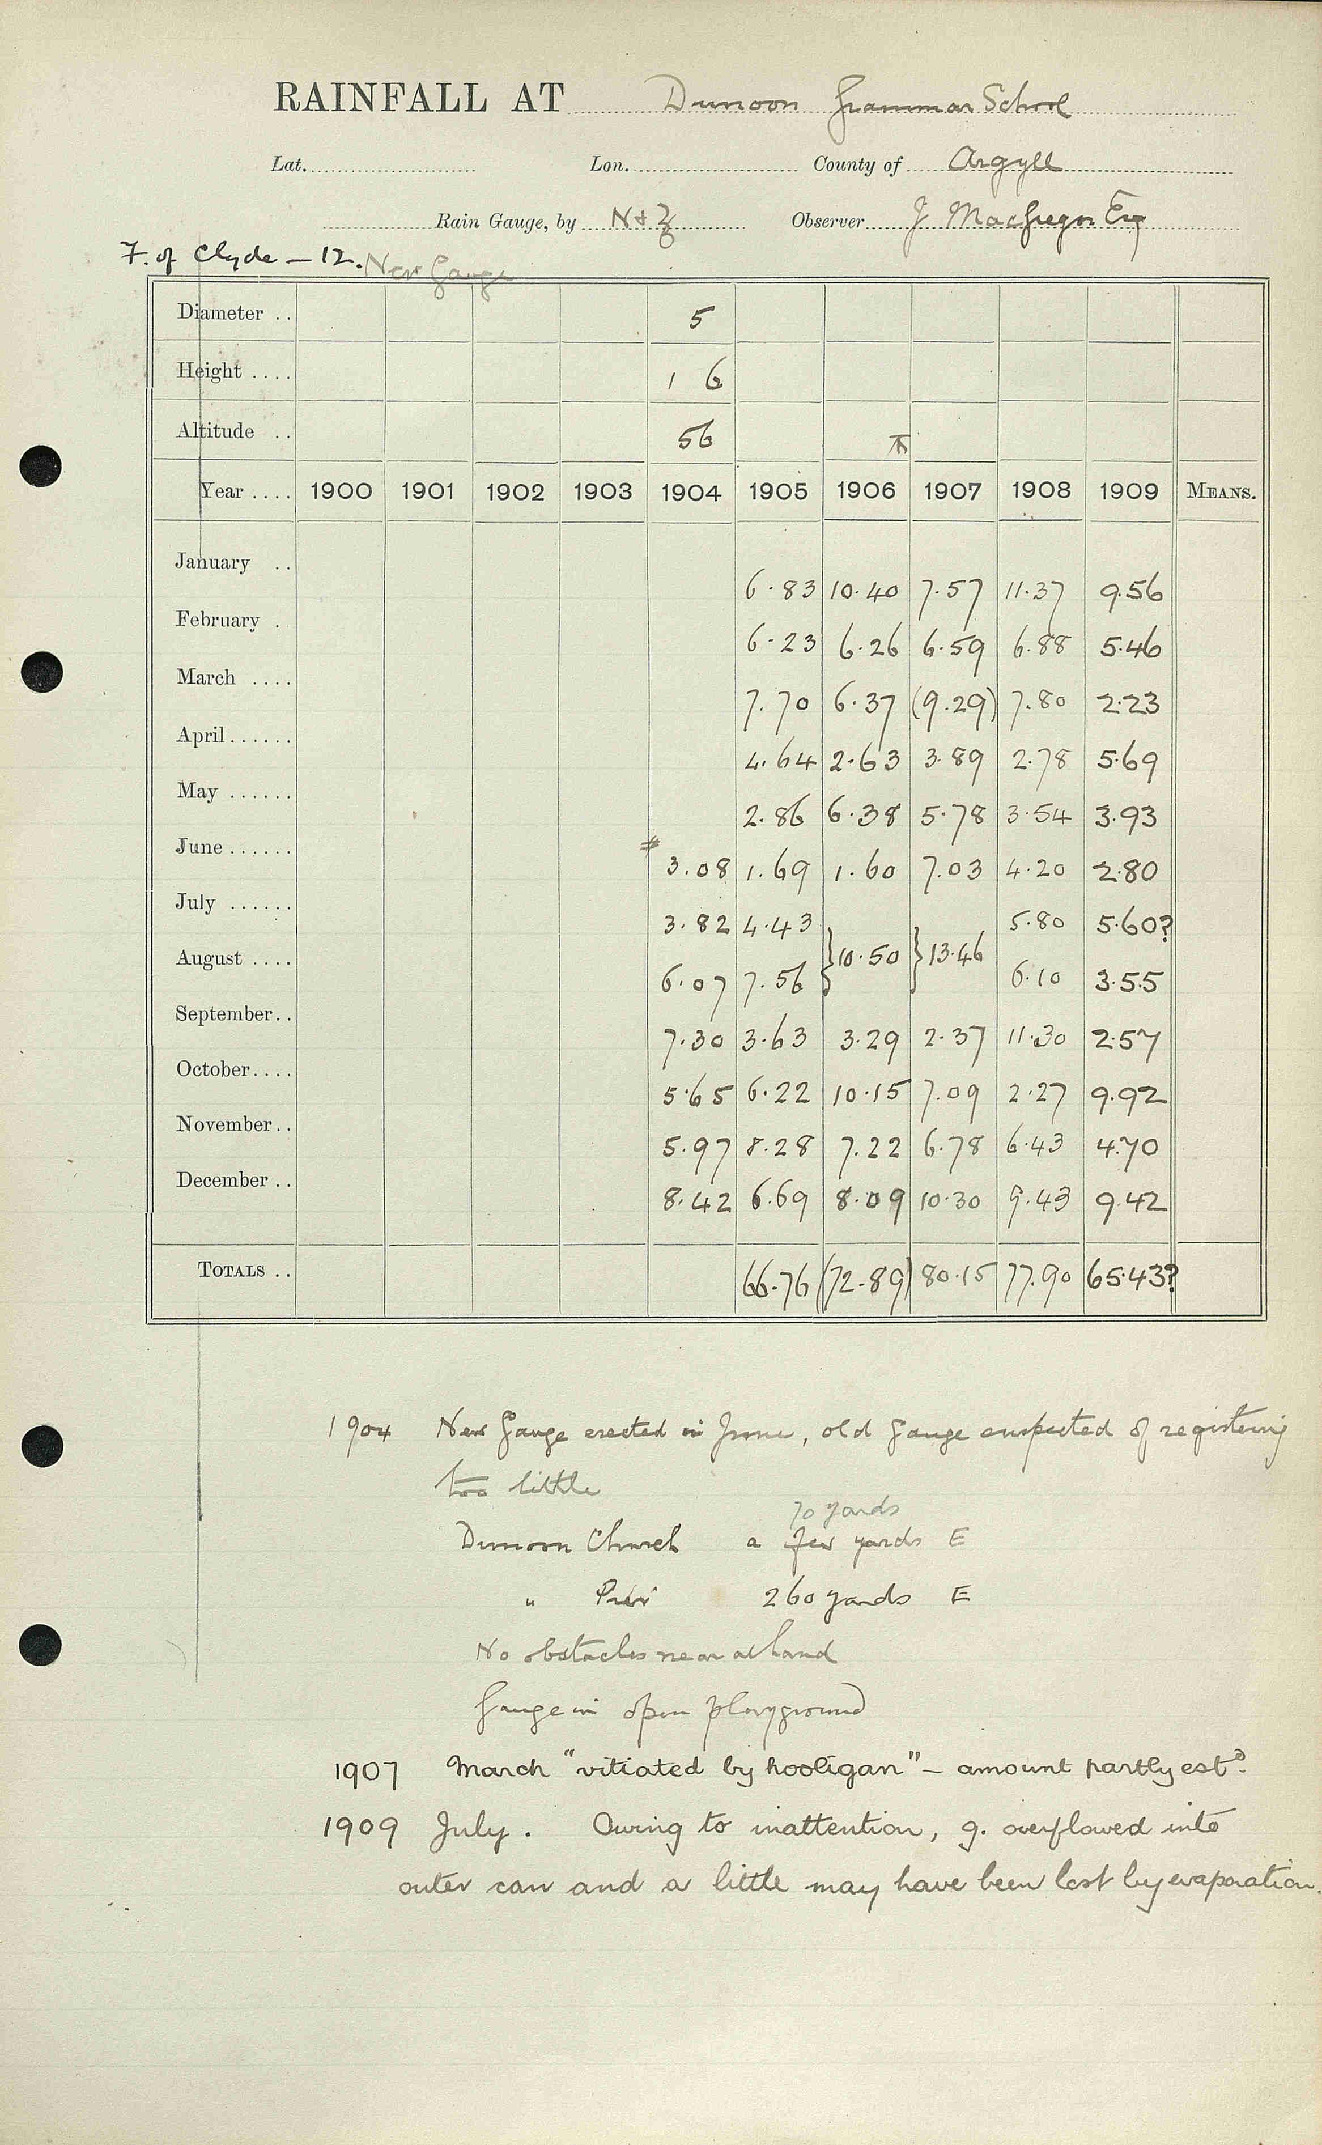 RAINFALL AT Dunoon Grammar School
Lat. Lon. County of Argyll
Rain Gauge, by N & Z Observer J MacGregor Esq
F. of Clyde – 12. New Gauge
Diameter .. 5
Height .... 1 6
Altitude .. 56
Year .... 1900 1901 1902 1903 1904 1905 1906 1907 1908 1909 MEANS.
January .. 6.83 10.40 7.57 11.37 9.56
February . 6.23 6.26 6.59 6.88 5.46
March .... 7.70 6.37 (9.29) 7.80 2.23
April...... 4.64 2.63 3.89 2.78 5.69
May ...... 2.86 6.38 5.78 3.54 3.93
June...... 3.08 1.69 1.60 7.03 4.20 2.80
July ...... 3.82 4.43 5.80 5.60?
} 10.50 } 13.46
August .... 6.07 7.56 6.10 3.55
September.. 7.30 3.63 3.29 2.37 11.30 2.57
October.... 5.65 6.22 10.15 7.09 2.27 9.92
November.. 5.97 8.28 7.22 6.78 6.43 4.70
December .. 8.42 6.69 8.09 10.30 9.43 9.42
TOTALS .. 66.76 (72.89) 80.15 77.90 65.43?
1904 New Gauge erected in June, old gauge suspected of registering
too little
70 yards
Dunoon Church a few yards E
" Pier 260 yards E
No obstacles near at hand
Gauge in open playground
1907 March "vitiated by hooligan" – amount partly estd.
1909 July. Owing to inattention, g. overflowed into
outer can and a little may have been lost by evaporation.